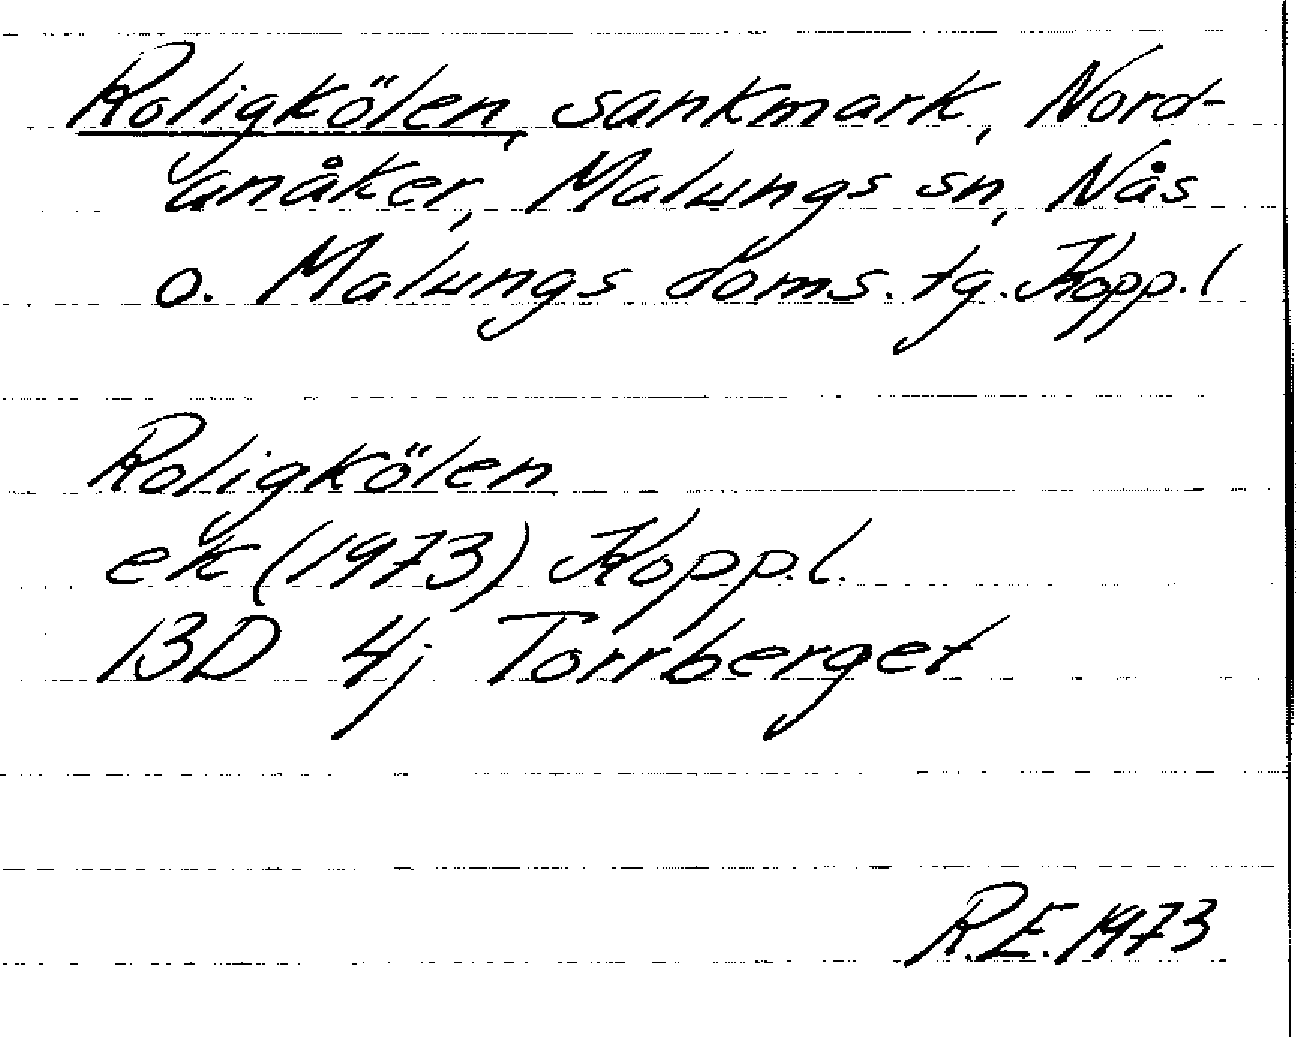 Roligkölen, sankmark, Nord-
anåker, Malungs sn, Nås
o. Malungs doms. tg. Kopp. l
Roligkölen
ek (1973) Kopp. l.
13D 4j Torrberget
R.E. 1973